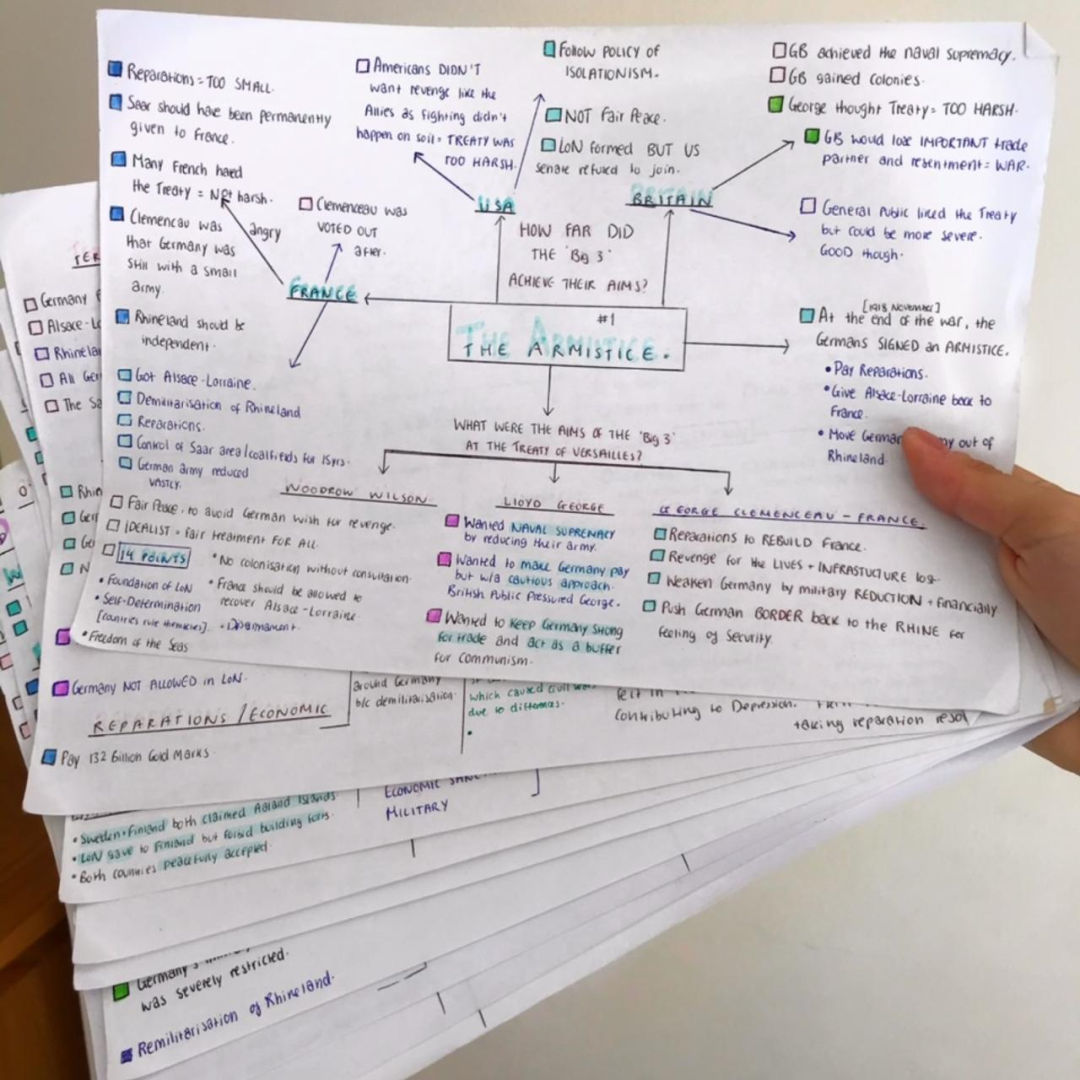 Reparations = TOO SMALL.
Saar should have been permanently
given to France.
Many French hated
the Treaty = NOT harsh.
Clemencau was angry
that Germany was
still with a small
army.
Rhineland should be
independent.
Clemenceau was
VOTED OUT
after.
FRANCE
Got Alsace-Lorraine.
Demilitarisation of Rhineland
Reparations.
Control of Saar area/coalfields for 15yrs.
German army reduced
VASTLY.
Americans DIDN'T
want revenge like the
Allies as fighting didn't
happen on soil = TREATY WAS
TOO HARSH.
USA
Follow POLICY OF
ISOLATIONISM.
NOT Fair Peace.
LoN formed BUT US
senate refused to join.
BRITAIN
GB achieved the naval supremacy.
GB gained colonies.
George thought Treaty = TOO HARSH.
GB would lose IMPORTANT trade
partner and resentment = WAR.
General Public liked the Treaty
but could be more severe.
GOOD though.
HOW FAR DID
THE 'Big 3'
ACHIEVE THEIR AIMS?
#1
THE ARMISTICE.
[1918 NOVEMBER]
At the end of the war, the
Germans SIGNED an ARMISTICE.
• Pay Reparations.
• Give Alsace-Lorraine back to
France.
• Move German out of
Rhineland.
WHAT WERE THE AIMS OF THE 'Big 3'
AT THE TREATY OF VERSAILLES?
WOODROW WILSON.
Fair Peace. to avoid German wish for revenge.
IDEALIST = fair treatment FOR ALL.
14 POINTS
• Foundation of LoN
• Self-Determination
[countries rule themselves].
• Freedom of the Seas
• No colonisation without consultation
• France should be allowed to
recover Alsace-Lorraine
• Disarmament.
LLOYD GEORGE
Wanted NAVAL SUPREMACY
by reducing their army.
Wanted to make Germany pay
but w/a cautious approach.
British Public Pressured George.
Wanted to KEEP GERMANY STRONG
for trade and act as a buffer
for communism.
GEORGE CLEMENCEAU - FRANCE.
Reparations to REBUILD France.
Revenge for the LIVES + INFRASTUCTURE lost
Weaken Germany by military REDUCTION + financially
Push German BORDER back to the RHINE for
feeling of security.
TER
Germany
Alsace-Lo
Rhinelan
All Ger
The Sa
Rhin
Ger
Ge
N
Germany NOT ALLOWED in LoN.
REPARATIONS/ECONOMIC
Pay 132 Billion Gold Marks.
around Germany
b/c demilitarisation.
which caused civil
due to differences.
felt in
Contributing to Depression.
taking reparation
ECONOMIC SANC
MILITARY
• Sweden + Finland both claimed Aaland Islands
• LoN gave to Finland but forbid building forts.
• Both countries peacefully accepted.
Germany's
was severely restricted.
Remilitarisation of Rhineland.